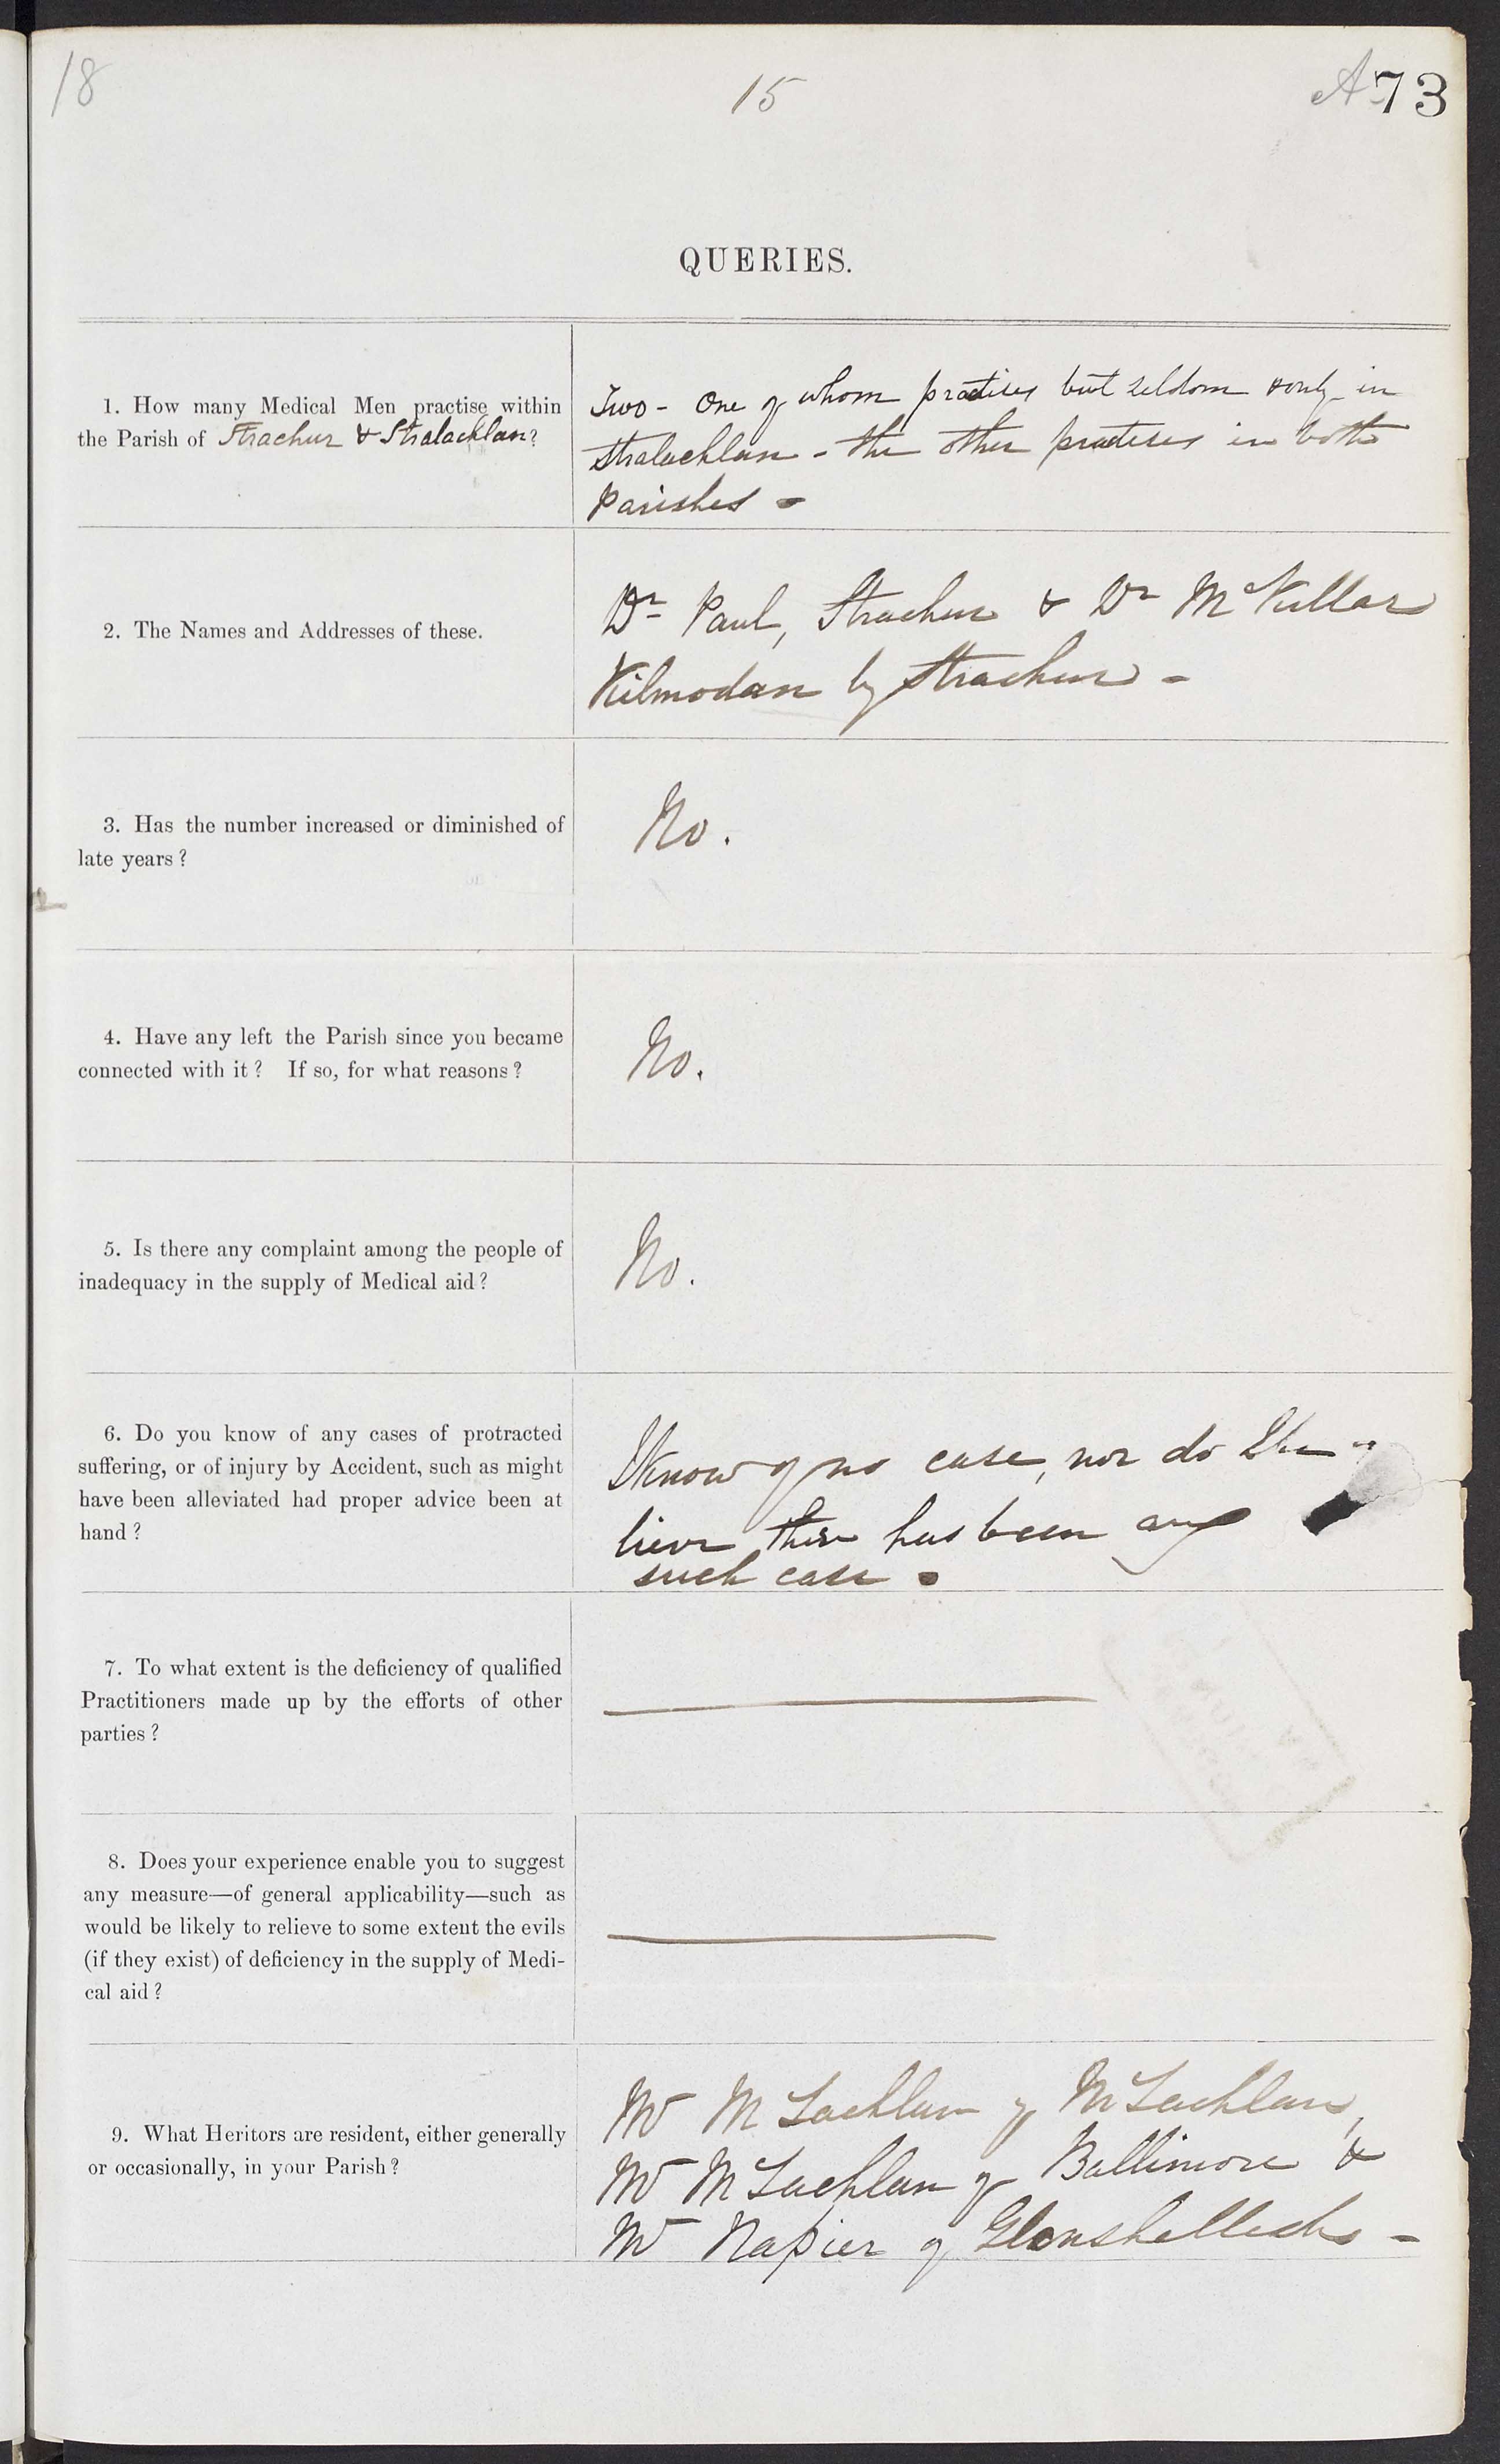 18
15
A 73
QUERIES.
1. How many Medical Men practise within
the Parish of Strachur & Stralachlan?
Two - One of whom practises but seldom & only in
Stralachlan - the other practises in both
Parishes -
2. The Names and Addresses of these.
Dr Paul, Strachur & Dr McKellar
Kilmodan by Strachur -
3. Has the number increased or diminished of
late years ?
No.
4. Have any left the Parish since you became
connected with it ? If so, for what reasons ?
No.
5. Is there any complaint among the people of
inadequacy in the supply of Medical aid ?
No.
6. Do you know of any cases of protracted
suffering, or of injury by Accident, such as might
have been alleviated had proper advice been at
hand ?
I know of no case, nor do I be-
lieve there has been any
such case.
7. To what extent is the deficiency of qualified
Practitioners made up by the efforts of other
parties ?
8. Does your experience enable you to suggest
any measure—of general applicability—such as
would be likely to relieve to some extent the evils
(if they exist) of deficiency in the supply of Medi-
cal aid ?
9. What Heritors are resident, either generally
or occasionally, in your Parish ?
Mr McLachlan of McLachlan,
Mr McLachlan of Baltimore &
Mr Napier of Glenshellech -